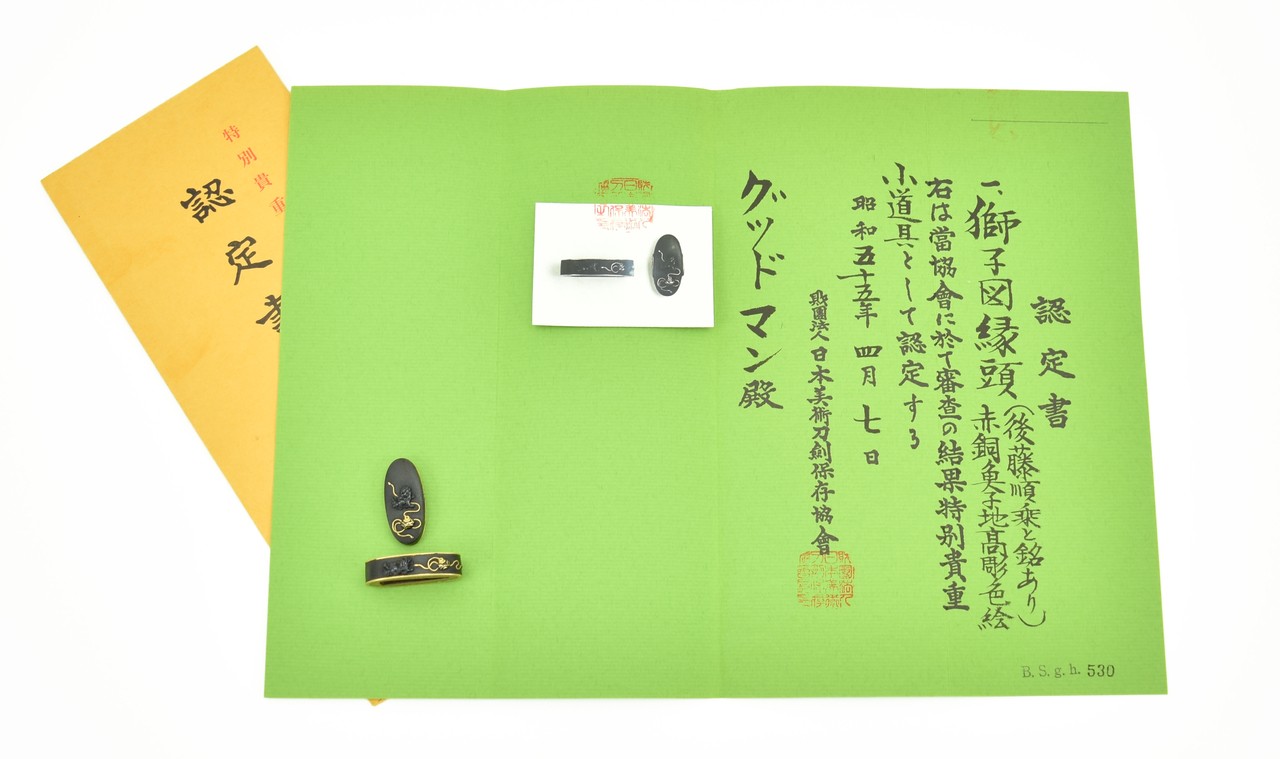 認定書
一、獅子図縁頭
(後藤順乗と銘あり)
赤銅魚子地高彫色絵
右は當協會に於て審査の結果特別貴重
小道具として認定する
昭和五十五年 四月 七日
財團法人 日本美術刀劍保存協會
グッドマン殿
B. S. g. h. 530
特別貴重
認定書